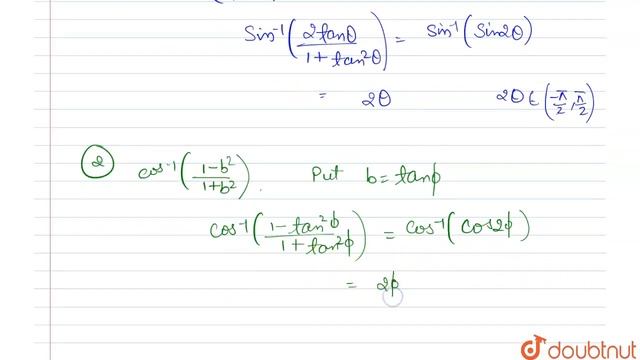 Sin⁻¹(2tanθ/1+tan²θ) = Sin⁻¹(Sin2θ)
= 2θ 2θ ∈ (-π/2, π/2)
② cos⁻¹(1-b²/1+b²). Put b = tanϕ
cos⁻¹(1-tan²ϕ/1+tan²ϕ) = cos⁻¹(cos2ϕ)
= 2ϕ
doubtnut